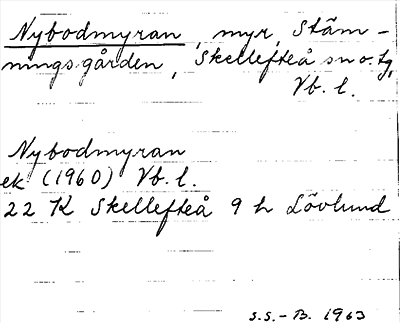 Nybodmyran, myr, Stäm-
ningsgården, Skellefteå sn o. tg,
Vb. l.
Nybodmyran
ek (1960) Vb. l.
22 K Skellefteå 9 h Lövlund
S.S.-B. 1963